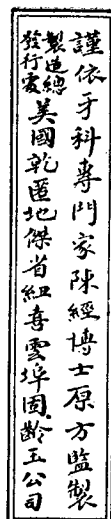 謹依牙科專門家陳經博士原方監製
製造總發行處
美國乾匿地傑省紐喜雲埠固齡玉公司